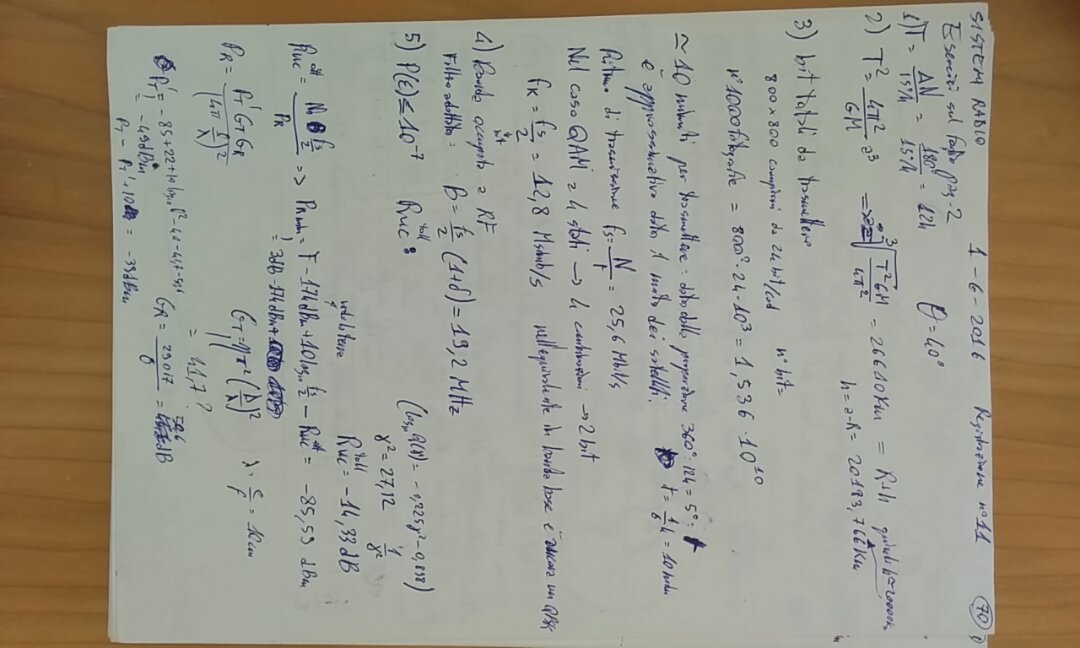 SISTEMI RADIO 1-6-2016 Registrazione n°11 70
Esercizi sul foglio pag. 2
1) T = ΔN / 15°/h = 180° / 15°/h = 12h θ = 40°
2) T² = 4π² / GM a³ => a = ³√(T²GM / 4π²) = 26610 Km = R+h quindi h ≃ 20000 Km
h = a-R = 20183,766 Km
3) bit totali da trasmettere
800 × 800 campioni da 24 bit/cad n° bit =
n° 1000 fotografie = 800² · 24 · 10³ = 1,536 · 10¹⁰
≃ 10 minuti per trasmettere: dato dalla proporzione 360° : 12h = 5° : t
è approssimativo dato il moto dei satelliti. t = 1/6 h = 10 min
Ritmo di trasmissione fs = N / t = 25,6 Mbit/s
Nel caso QAM a 4 stati → 4 combinazioni → 2 bit
fK = fs / 2 = 12,8 Msimb/s nell'equivalente in banda base è ancora un QPSK
bit
4) Banda occupata a RF
Filtro adottato: B = fs / 2 (1+δ) = 19,2 MHz
5) P(ε) ≤ 10⁻⁷ Ruc toll : (log₁₀ Q(γ) = -0,225γ² - 0,898)
γ² = 27,12 1 / γ²
Ruc toll = -14,33 dB
Ruc = N₀ fs/2 / PR => PR min = F - 174 dBm + 10 log₁₀ fs/2 - Ruc = -85,59 dBm
= 3dB - 174 dBm +
PR = PT' GT GR / (4π / λ)² GT = η π² (D / λ)² λ = c / f = 10 cm
= 41,7 ?
PT' = -85 + 22 + GR = 29017 / θ = dB
= -49 dBm
PT = PT' + 10 = -39 dBm